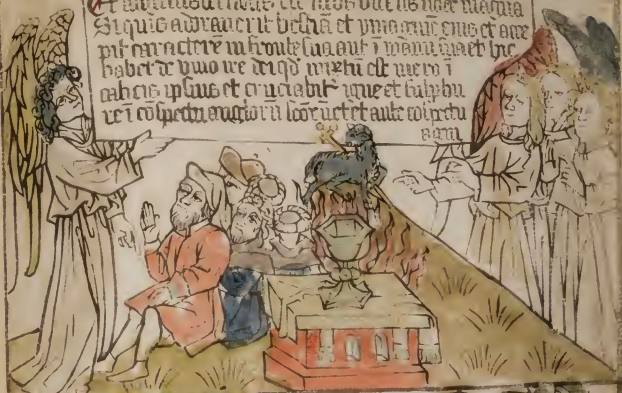 voce magna
Si quis adoraverit bestiā et ymaginē eius et acce
pit caracterē in fronte sua aut ī manu sua et hic
bibet de vino ire dei qd mixtū est mero ī
calicis ipsius et cruciabitʳ igne et sulphu
re ī cōspectu angelorū scōrū et ante cōspectu
agni